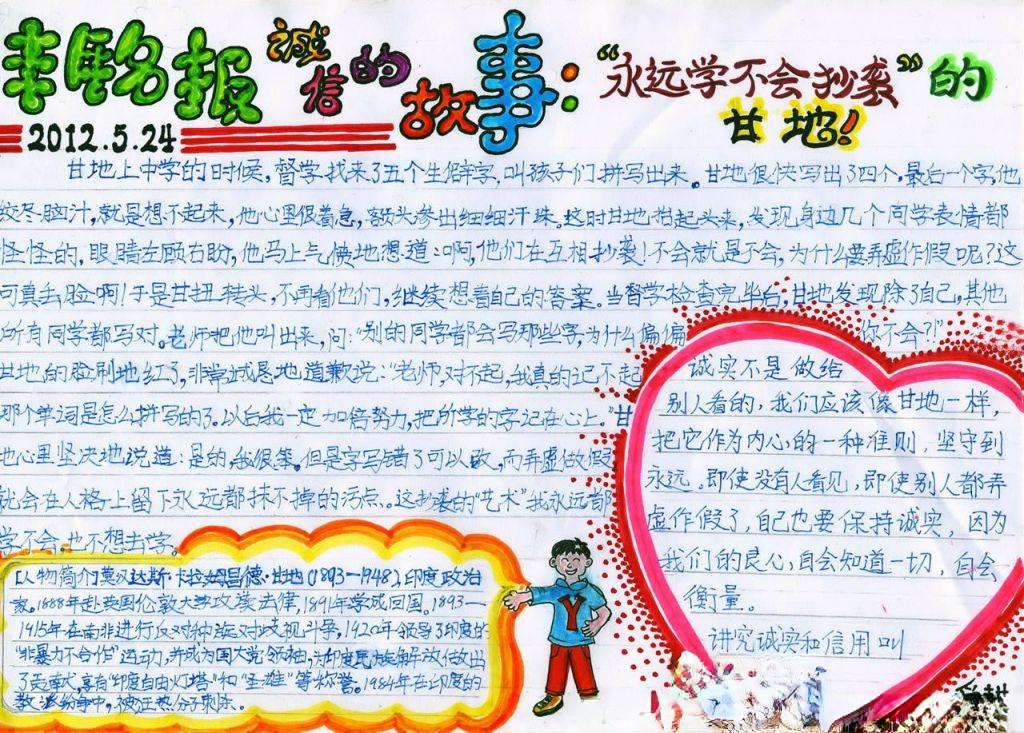 诚信的故事：“永远学不会抄袭”的
甘地！
2012.5.24
甘地上中学的时候，督学找来了五个生僻字，叫孩子们拼写出来。甘地很快写出了四个，最后一个字，他
绞尽脑汁，就是想不起来，他心里很着急，额头渗出细细汗珠。这时甘地抬起头来，发现身边几个同学表情都
怪怪的，眼睛左顾右盼，他马上气愤地想道：啊，他们在互相抄袭！不会就是不会，为什么要弄虚作假呢？这
可真丢脸啊！于是甘扭转头，不再看他们，继续想着自己的答案。当督学检查完毕后，甘地发现除了自己，其他
所有同学都写对。老师把他叫出来，问：“别的同学都会写那些字，为什么偏偏你不会？！”
甘地的脸刷地红了，非常诚恳地道歉说：“老师，对不起，我真的记不起
那个单词是怎么拼写的了。以后我一定加倍努力，把所学的字记在心上。”甘
地心里坚决地说道：是的，我很笨。但是字写错了可以改，而弄虚做假
就会在人格上留下永远都抹不掉的污点。这抄袭的“艺术”我永远都
学不会，也不想去学。
诚实不是做给
别人看的，我们应该像甘地一样，
把它作为内心的一种准则，坚守到
永远。即使没有人看见，即使别人都弄
虚作假了，自己也要保持诚实，因为
我们的良心，自会知道一切，自会
衡量。
讲究诚实和信用叫
[人物简介]莫汉达斯·卡拉姆昌德·甘地（1893—1948），印度政治
家。1888年赴英国伦敦大学攻读法律，1891年学成回国。1893—
1915年在南非进行反对种族歧视斗争，1920年领导了印度的
“非暴力不合作”运动，并成为国大党领袖，为印度民族解放做出
了贡献，享有“印度自由灯塔”和“圣雄”等称誉。1984年在印度的
教派纷争中，被狂热分子刺杀。